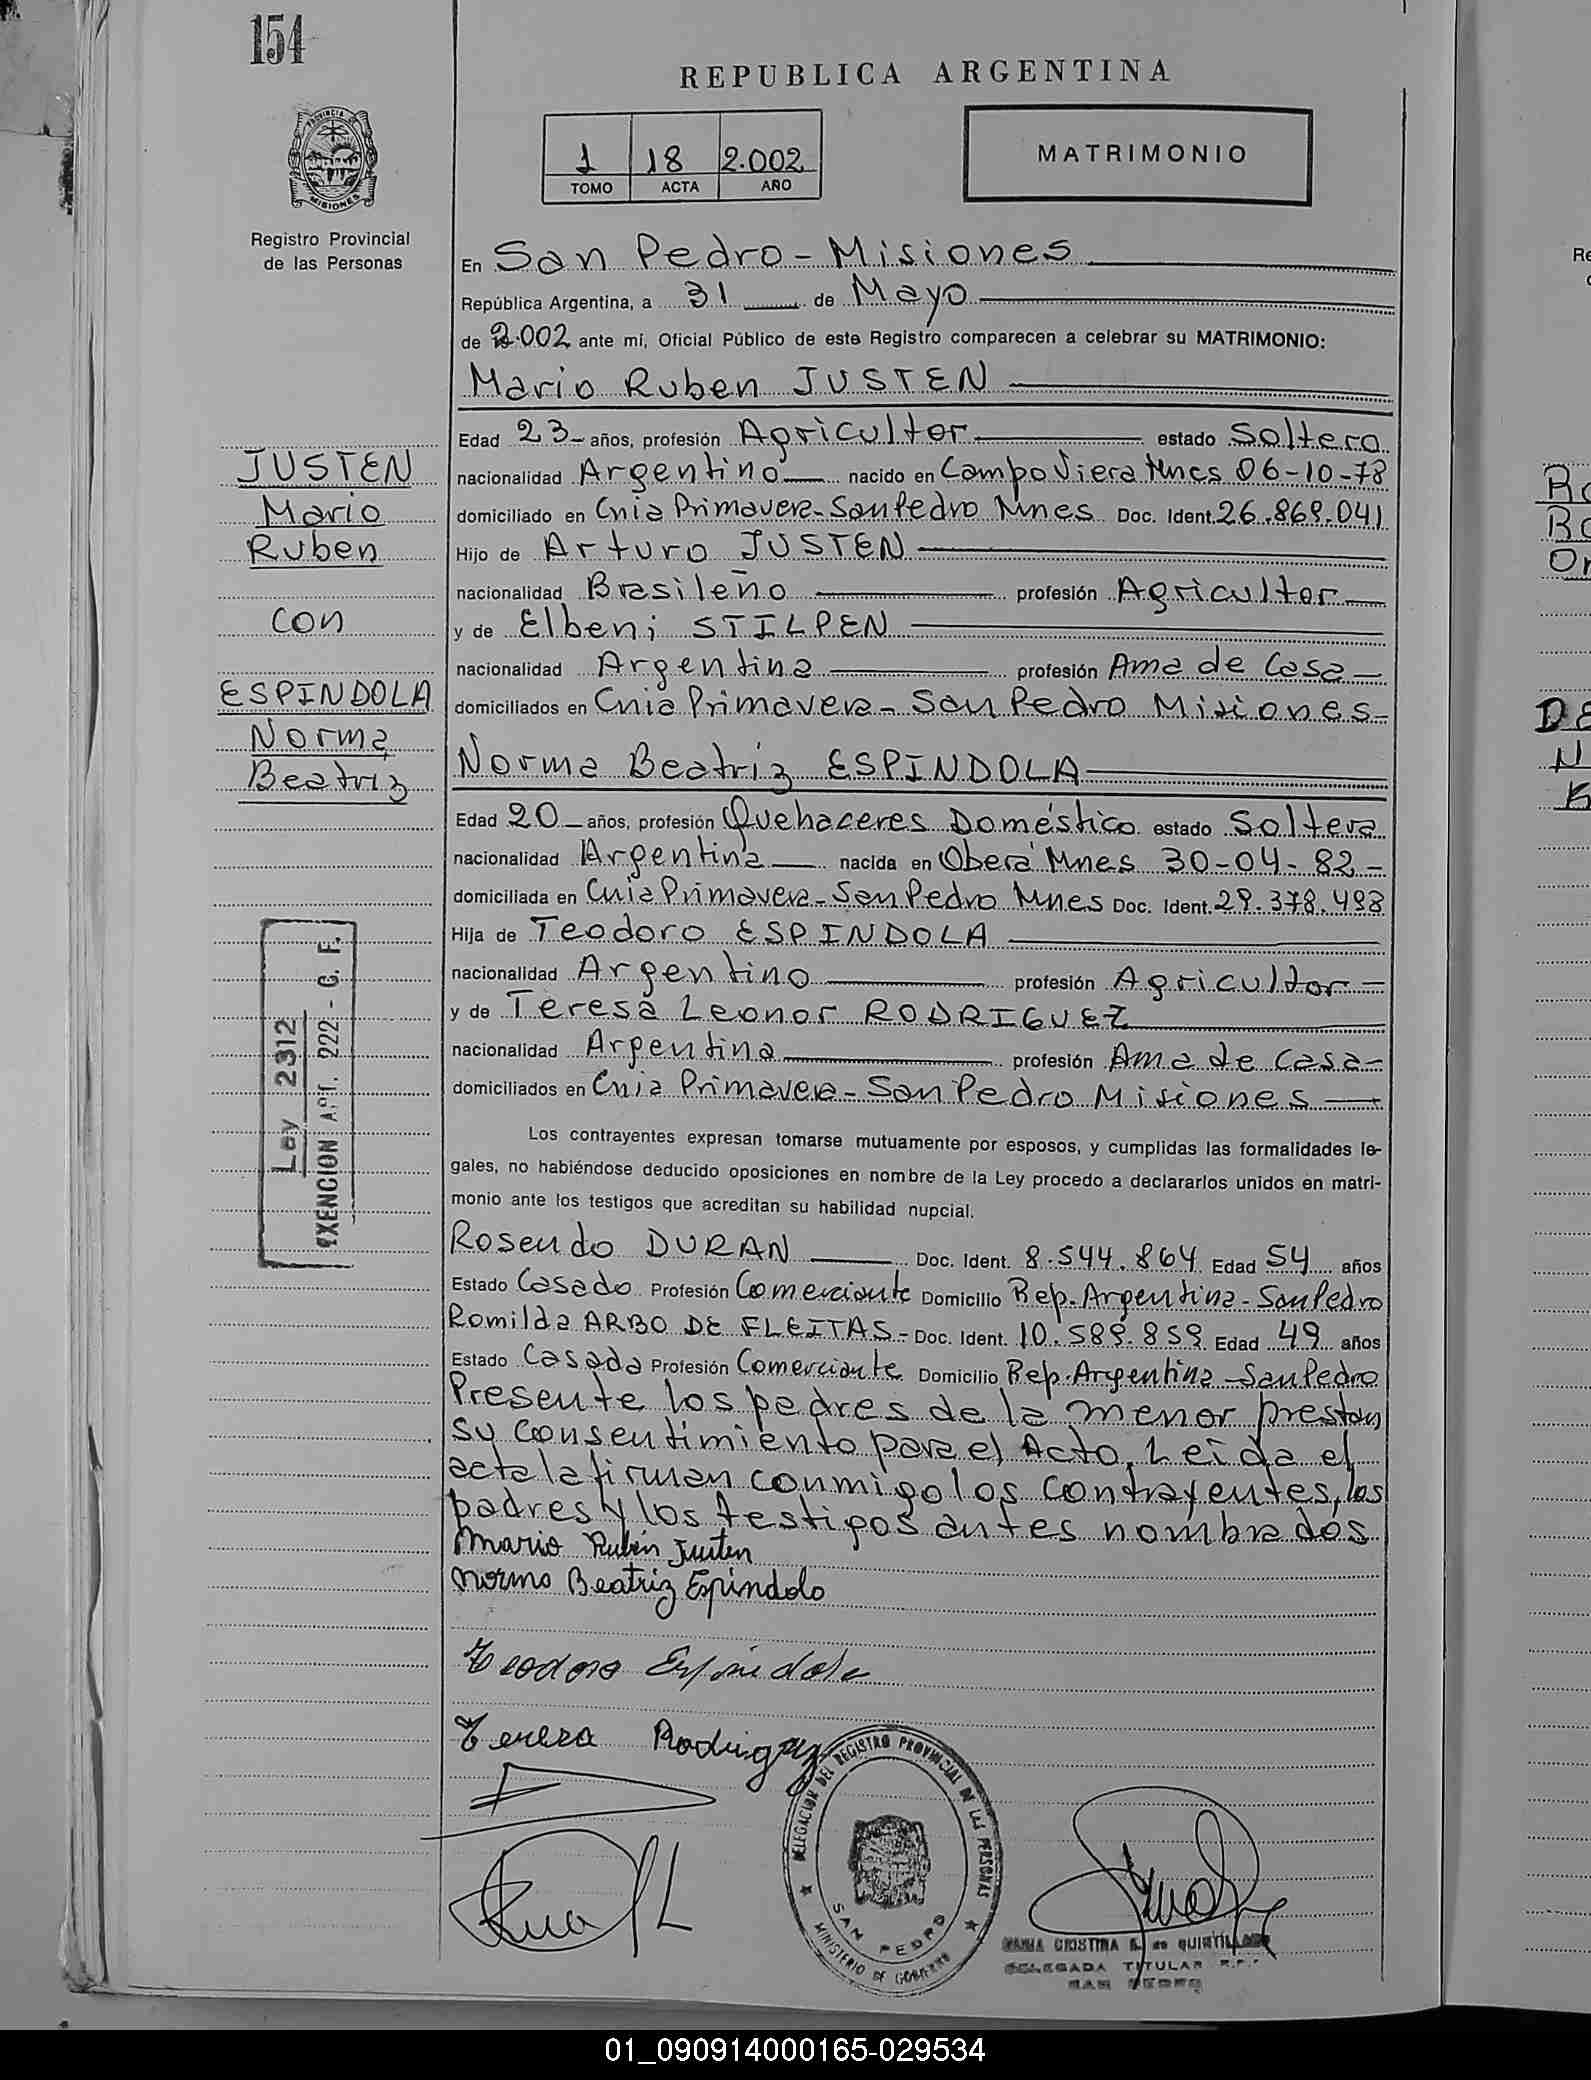 154
REPUBLICA ARGENTINA
PROVINCIA DE
MISIONES
Registro Provincial
de las Personas
1 18 2.002
TOMO ACTA AÑO
MATRIMONIO
En San Pedro - Misiones
República Argentina, a 31 de Mayo
de 2.002 ante mí, Oficial Público de este Registro comparecen a celebrar su MATRIMONIO:
Mario Ruben JUSTEN
Edad 23- años, profesión Agricultor estado Soltero
nacionalidad Argentino nacido en Campo Viera Mnes 06-10-78
domiciliado en Cnia Primavera - San Pedro Mnes Doc. Ident. 26.869.041
Hijo de Arturo JUSTEN
nacionalidad Brasileño profesión Agricultor
y de Elbeni STILPEN
nacionalidad Argentina profesión Ama de Casa
domiciliados en Cnia Primavera - San Pedro Misiones-
JUSTEN
Mario
Ruben
con
ESPINDOLA
Norma
Beatriz
Norma Beatriz ESPINDOLA
Edad 20- años, profesión Quehaceres Doméstico estado Soltera
nacionalidad Argentina nacida en Oberá Mnes 30-04-82-
domiciliada en Cnia Primavera - San Pedro Mnes Doc. Ident. 29.378.493
Hija de Teodoro ESPINDOLA
nacionalidad Argentino profesión Agricultor
y de Teresa Leonor RODRIGUEZ
nacionalidad Argentina profesión Ama de Casa-
domiciliados en Cnia Primavera - San Pedro Misiones
Ley 2312
EXENCION Art. 222 - C. F.
Los contrayentes expresan tomarse mutuamente por esposos, y cumplidas las formalidades le-
gales, no habiéndose deducido oposiciones en nombre de la Ley procedo a declararlos unidos en matri-
monio ante los testigos que acreditan su habilidad nupcial.
Rosendo DURAN Doc. Ident. 8.544.864 Edad 54 años
Estado Casado Profesión Comerciante Domicilio Rep. Argentina - San Pedro
Romilda ARBO DE FLEITAS- Doc. Ident. 10.589.859 Edad 49 años
Estado Casada Profesión Comerciante Domicilio Rep. Argentina - San Pedro
Presente los padres de la menor prestan
su consentimiento para el Acto. Leida el
acta la firman conmigo los contrayentes, los
padres y los testigos antes nombrados
Mario Rubén Justen
Norma Beatriz Espindola
Teodoro Espindola
Teresa Rodriguez
DELEGACION DEL REGISTRO PROVINCIAL DE LAS PERSONAS
SAN PEDRO
MINISTERIO DE GOBIERNO
MARIA CRISTINA de
DELEGADA TITULAR
SAN PEDRO
01_090914000165-029534